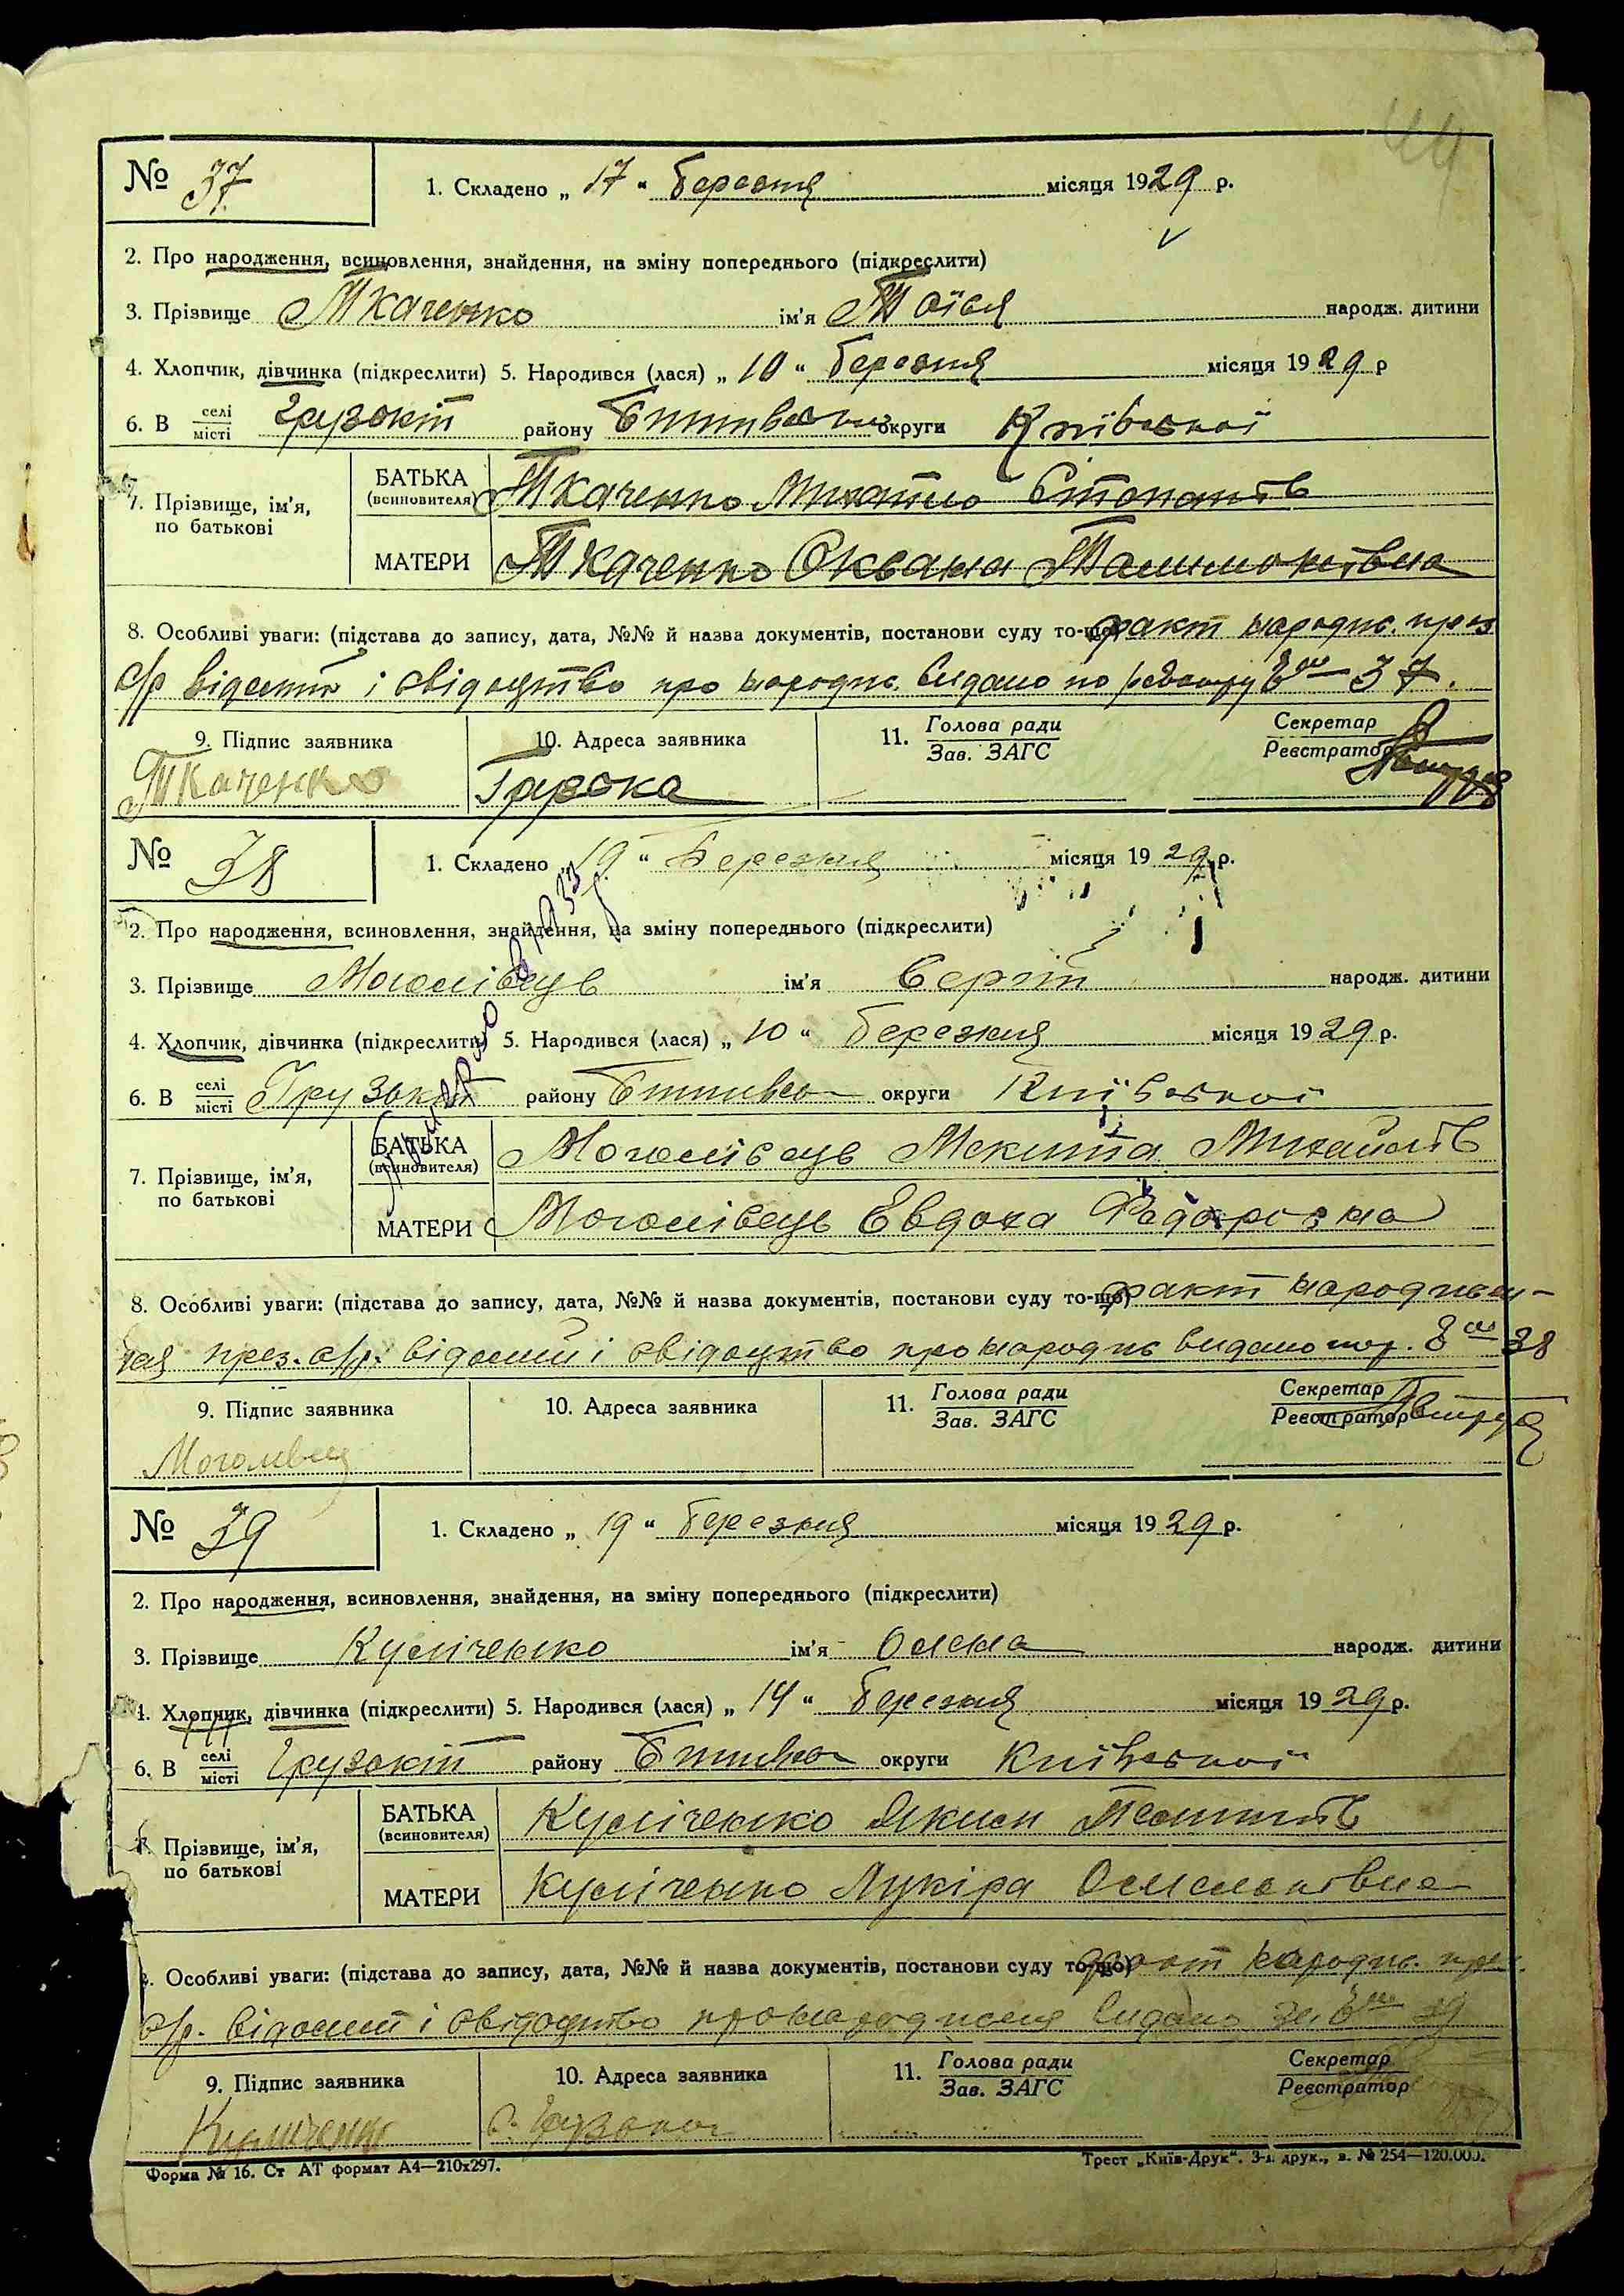 44
№ 37
1. Складено „ 17 “ Березня місяця 1929 р.
2. Про народження, всиновлення, знайдення, на зміну попереднього (підкреслити)
3. Прізвище Ткаченко ім'я народж. дитини
4. Хлопчик, дівчинка (підкреслити) 5. Народився (лася) „ 10 “ Березня місяця 1929 р
6. В селі/місті Грузькій району округи Київської
7. Прізвище, ім'я, по батькові
БАТЬКА (всиновителя) Ткаченко Михайло
МАТЕРИ Ткаченко Оксана
8. Особливі уваги: (підстава до запису, дата, №№ й назва документів, постанови суду то-що) факт народж. през
с/р відомий і свідоцтво про народж. видано по 37.
9. Підпис заявника 10. Адреса заявника 11. Голова ради/Зав. ЗАГС Секретар/Реєстратор
Ткаченко Грузька
№ 38
1. Складено „ 19 “ Березня місяця 1929 р.
2. Про народження, всиновлення, знайдення, на зміну попереднього (підкреслити)
3. Прізвище Моголівець ім'я Сергій народж. дитини
4. Хлопчик, дівчинка (підкреслити) 5. Народився (лася) „ 10 “ Березня місяця 1929 р.
6. В селі/місті Грузькій району округи Київської
7. Прізвище, ім'я, по батькові
БАТЬКА (всиновителя) Моголівець Микита Михайлів
МАТЕРИ Моголівець Евдоха Федоровна
8. Особливі уваги: (підстава до запису, дата, №№ й назва документів, постанови суду то-що) факт народжен-
ня през. с/р. відомий і свідоцтво про народж видано 38
9. Підпис заявника 10. Адреса заявника 11. Голова ради/Зав. ЗАГС Секретар/Реєстратор
№ 39
1. Складено „ 19 “ Березня місяця 1929 р.
2. Про народження, всиновлення, знайдення, на зміну попереднього (підкреслити)
3. Прізвище Куліченко ім'я Олена народж. дитини
4. Хлопчик, дівчинка (підкреслити) 5. Народився (лася) „ 14 “ Березня місяця 1929 р.
6. В селі/місті Грузькій району округи Київської
7. Прізвище, ім'я, по батькові
БАТЬКА (всиновителя) Куліченко Яким
МАТЕРИ Куліченко Лукіра
8. Особливі уваги: (підстава до запису, дата, №№ й назва документів, постанови суду то-що) факт народж. през.
с/р. відомий і свідоцтво про народження видано за 39
9. Підпис заявника 10. Адреса заявника 11. Голова ради/Зав. ЗАГС Секретар/Реєстратор
Куліченко с. Грузька
Форма № 16. Ст АТ формат А4—210х297. Трест „Київ-Друк“. 3-я друк., з. № 254—120.000.